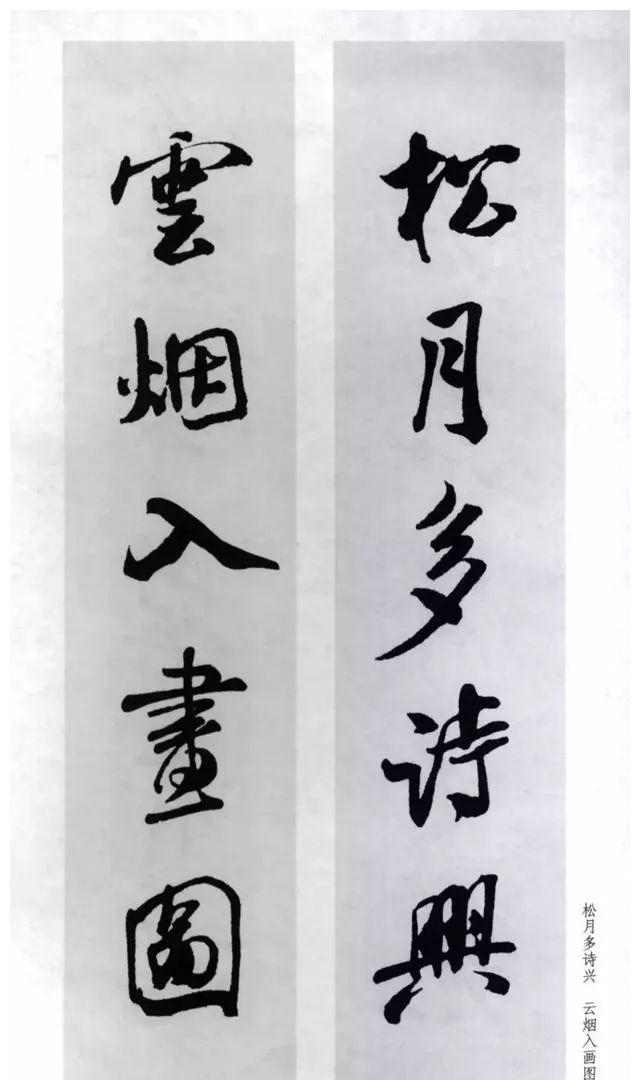 松月多詩興
雲烟入畫圖
松月多诗兴 云烟入画图